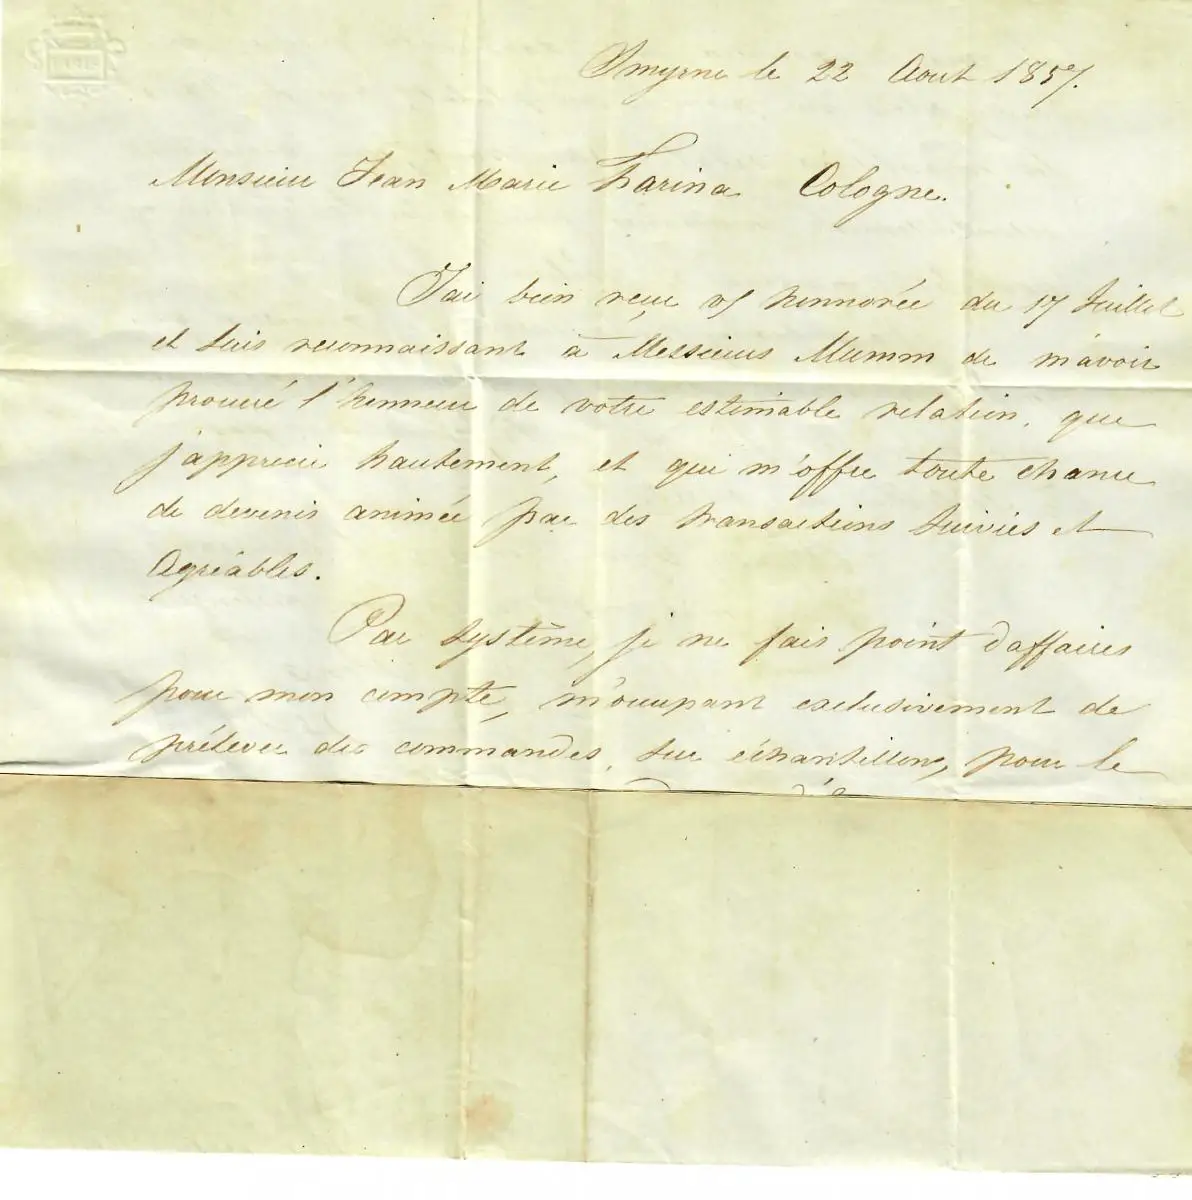 Smyrne le 22 Aout 1857.
Monsieur Jean Marie Farina Cologne.
J'ai bien reçu vs honnorée du 17 Juillet
et suis reconnaissant à Messieurs Mumm de m'avoir
procuré l'honneur de votre estimable relation, que
j'apprécie hautement, et qui m'offre toute chance
de devenir animée par des transactions suivies et
Agréables.
Par système, je ne fais point d'affaires
pour mon compte, m'occupant exclusivement de
prélever des commandes, sur échantillons, pour le